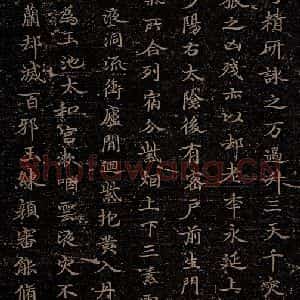 精研詠之万過升三天千灾
狼之凶殘亦以却老年永延上
少陽右太陰後有密戶前生門
所合列宿分紫烟上下三素雲
液洞流衝廬間迴紫抱黄入丹
為玉池太和官漱咽靈液灾不
肅却滅百邪玉鍊顏審能脩
Shufawang.cn